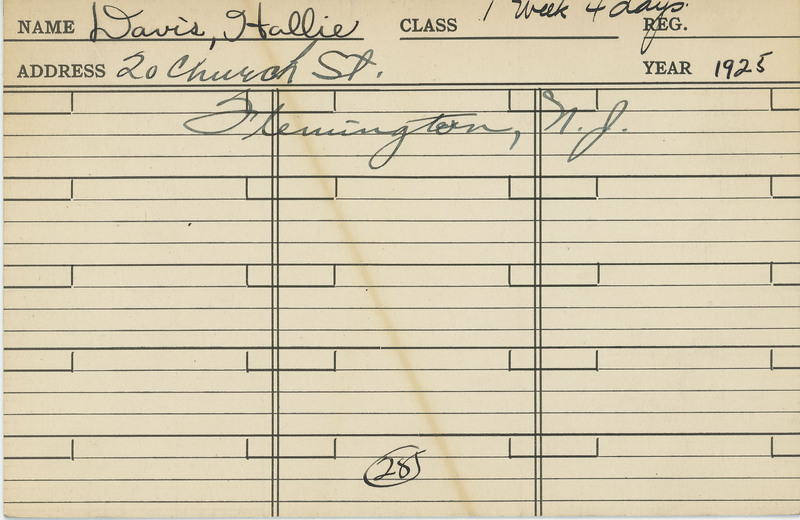 NAME Davis, Hallie CLASS 1 Week 4 days. REG.
ADDRESS 20 Church St. YEAR 1925
Flemington, N. J.
285